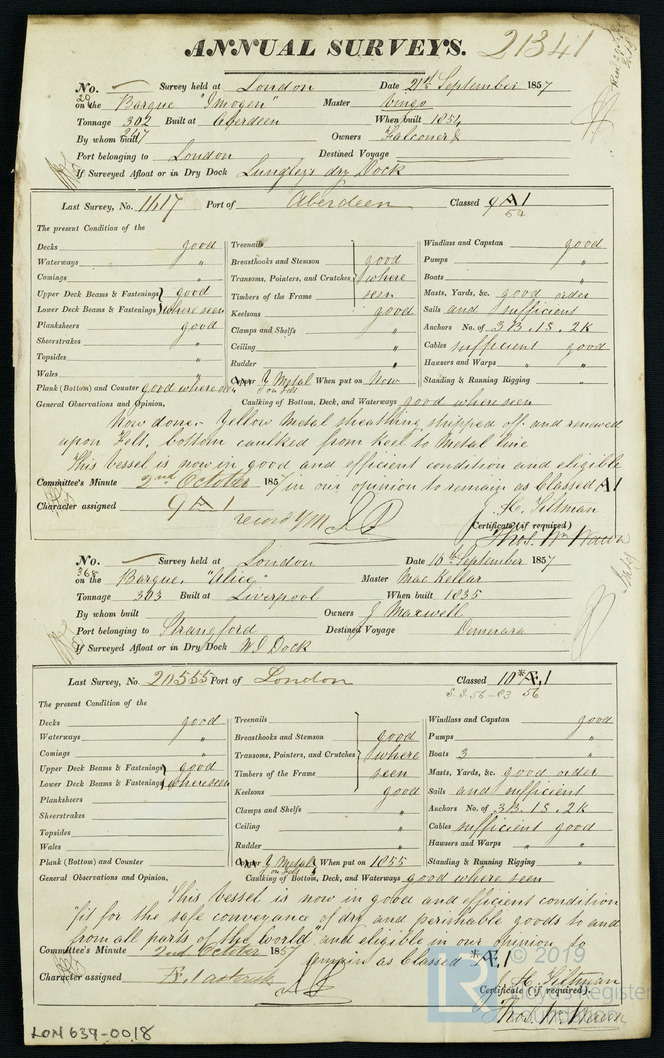 ANNUAL SURVEYS. 21341
No. — Survey held at London Date 21st September 1857
20 on the Barque "Imogen" Master Wingo
Tonnage 302 Built at Aberdeen When built 1854
By whom built 247 Owners Falconer &
Port belonging to London Destined Voyage
If Surveyed Afloat or in Dry Dock Lungley's dry Dock
Last Survey, No. 1417 Port of Aberdeen Classed 9 A 1
54
The present Condition of the
Decks good
Waterways "
Comings "
Upper Deck Beams & Fastenings good
Lower Deck Beams & Fastenings where seen
Planksheers good
Sheerstrakes "
Topsides "
Wales "
Plank (Bottom) and Counter good where seen
Treenails
Breasthooks and Stemson good
Transoms, Pointers, and Crutches where
Timbers of the Frame seen
Keelsons good
Clamps and Shelfs "
Ceiling "
Rudder "
Y Metal When put on Now
on Felt
Caulking of Bottom, Deck, and Waterways good where seen
Windlass and Capstan good
Pumps "
Boats "
Masts, Yards, &c. good order
Sails and sufficient
Anchors No. of 3B, 1S, 2K
Cables sufficient good
Hawsers and Warps " "
Standing & Running Rigging "
General Observations and Opinion,
Now done. Yellow Metal sheathing stripped off and renewed
upon Felt, bottom caulked from keel to Metal line
This vessel is now in good and efficient condition and eligible
Committee's Minute 2nd October 1857 in our opinion to remain as Classed A1
Character assigned 9 A 1
record YM
J. H. Tiltman
Certificate (if required)
Thos. Wm Wawn
No. — Survey held at London Date 10th September 1857
368 on the Barque, "Alice" Master Mac Kellar
Tonnage 303 Built at Liverpool When built 1835
By whom built Owners J Maxwell
Port belonging to Strangford Destined Voyage Demerara
If Surveyed Afloat or in Dry Dock W I Dock
Last Survey, No. 20555 Port of London Classed 10 * Æ 1
S.S. 56-C3 56
The present Condition of the
Decks good
Waterways "
Comings "
Upper Deck Beams & Fastenings good
Lower Deck Beams & Fastenings where seen
Planksheers
Sheerstrakes
Topsides
Wales
Plank (Bottom) and Counter
Treenails
Breasthooks and Stemson good
Transoms, Pointers, and Crutches where
Timbers of the Frame seen
Keelsons good
Clamps and Shelfs "
Ceiling "
Rudder "
Y Metal When put on 1855
on Felt
Caulking of Bottom, Deck, and Waterways good where seen
Windlass and Capstan good
Pumps "
Boats 3 "
Masts, Yards, &c. good order
Sails and sufficient
Anchors No. of 3B, 1S, 2K
Cables sufficient good
Hawsers and Warps " "
Standing & Running Rigging "
General Observations and Opinion,
This vessel is now in good and efficient condition
"fit for the safe conveyance of dry and perishable goods to and
from all parts of the World" and eligible in our opinion to
Committee's Minute 2nd October 1857
remain as Classed * Æ 1
Character assigned Æ 1 asterisk
J. H. Tiltman
Certificate (if required).
Thos. Wm Wawn
LON 639-0018
LR
© 2019
Lloyd's Register
Foundation